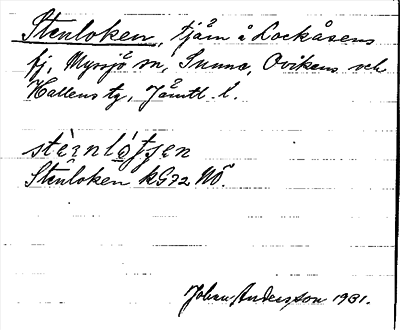 Stenloken, tjärn å Lockåsens
fj, Myssjö sn, Sunne, Ovikens och
Hallens tg, Jämtl. l.
stènlòtjen
Stenloken KG72 NÖ.
Johan Andersson 1931.